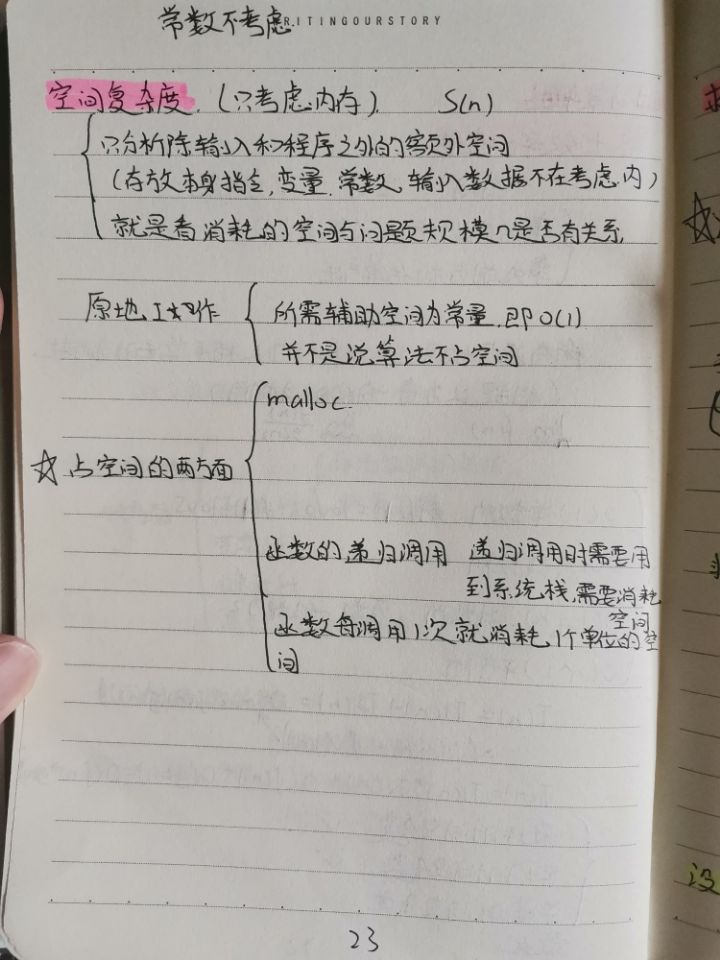 常数不考虑
RITINGOURSTORY
空间复杂度.（只考虑内存）. S(n)
只分析除输入和程序之外的额外空间
（存放本身指令,变量.常数,输入数据不在考虑内）
就是看消耗的空间与问题规模n是否有关系.
原地工作
所需辅助空间为常量.即O(1)
并不是说算法不占空间
malloc.
☆占空间的两方面
函数的递归调用 递归调用时需要用
到系统栈,需要消耗
空间
函数每调用1次就消耗1个单位的空
间
23
没